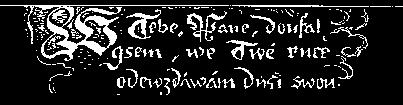 W Tebe, Pane, doufal
gsem, we Twé ruce
odewzdáwám dussi swou.